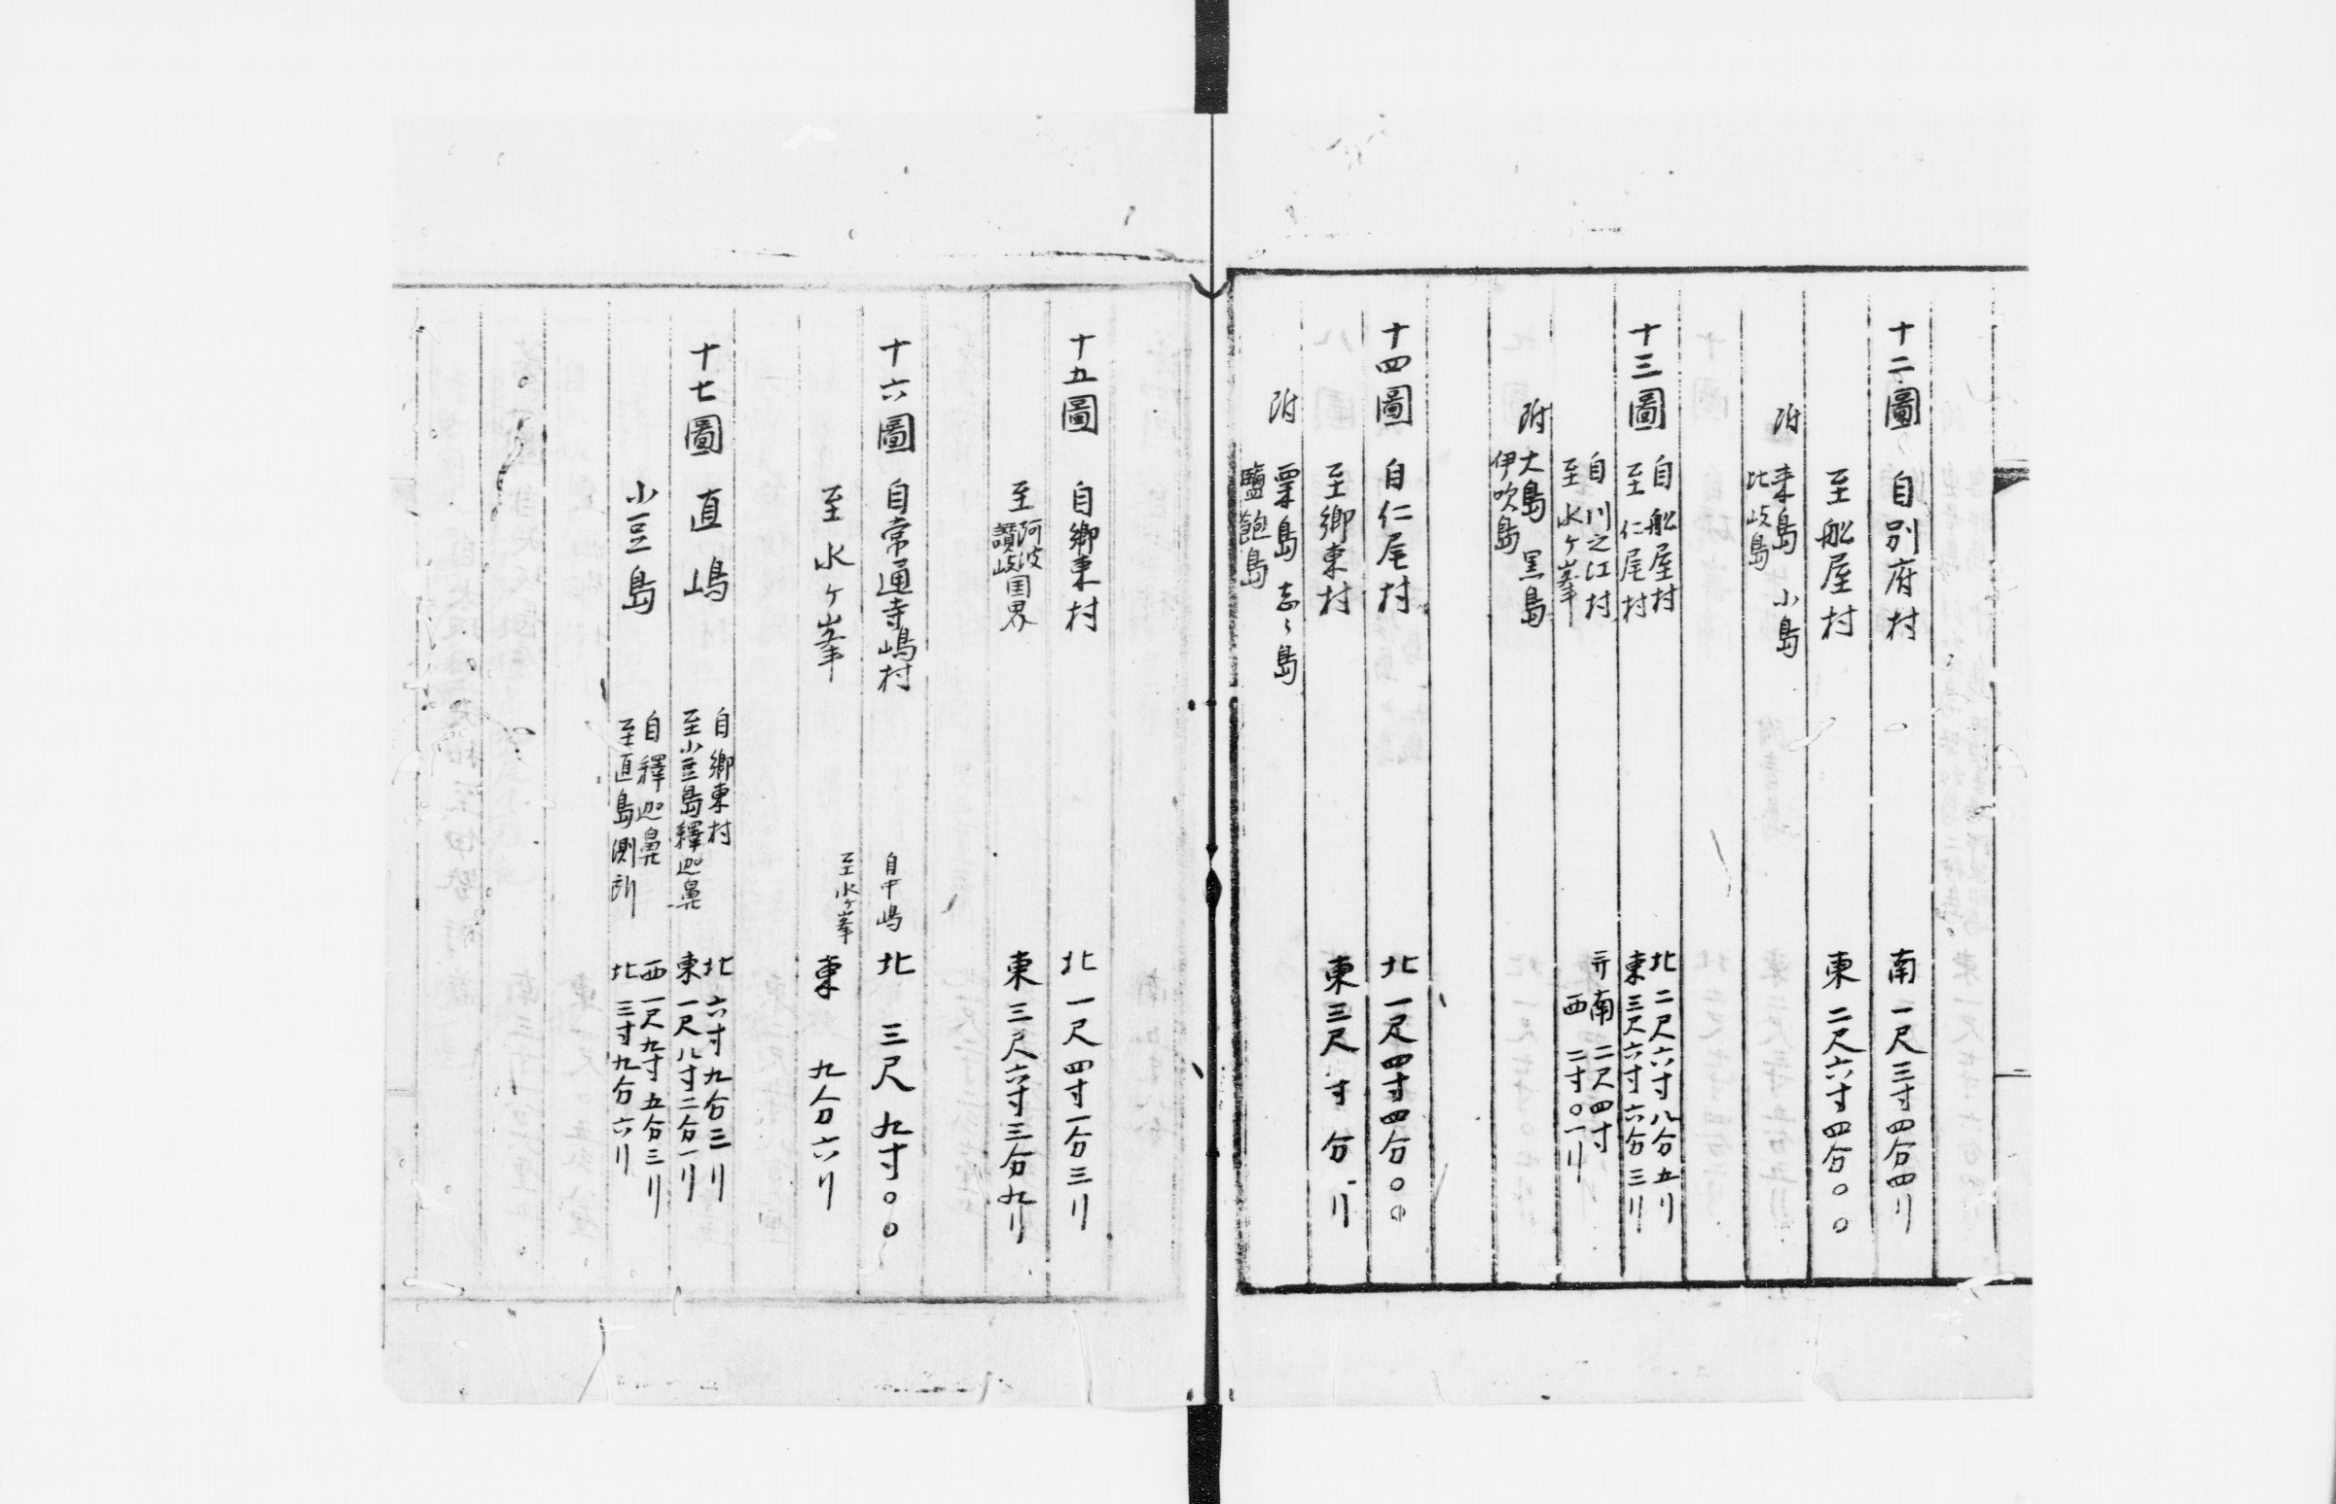 十二圖 自別府村 南一尺三寸四分四リ
至舩屋村 東二尺六寸四分〇〇
附 来島 小島
比岐島
十三圖 自舩屋村 北二尺六寸八分五リ
至仁尾村 東三尺六寸六分三リ
自川之江村 南二尺四寸
至水ヶ峯 西二寸〇一リ
附 大島 黒島
伊吹島
十四圖 自仁尾村 北一尺四寸四分〇〇
至郷東村 東三尺 寸 分 リ
附 粟島 志々島
鹽飽島
十五圖 自郷東村 北一尺四寸一分三リ
至 阿波
讃岐 国界 東三尺六寸三分九リ
十六圖 自常通寺嶋村 自中嶋 北 三尺九寸〇〇
至水ヶ峯 至水ヶ峯 東 九分六リ
十七圖 直嶋 自郷東村 北六寸九分三リ
至小豆島釋迦鼻 東一尺八寸二分一リ
小豆島 自釋迦鼻 西一尺九寸五分三リ
至直島測所 北三寸九分六リ